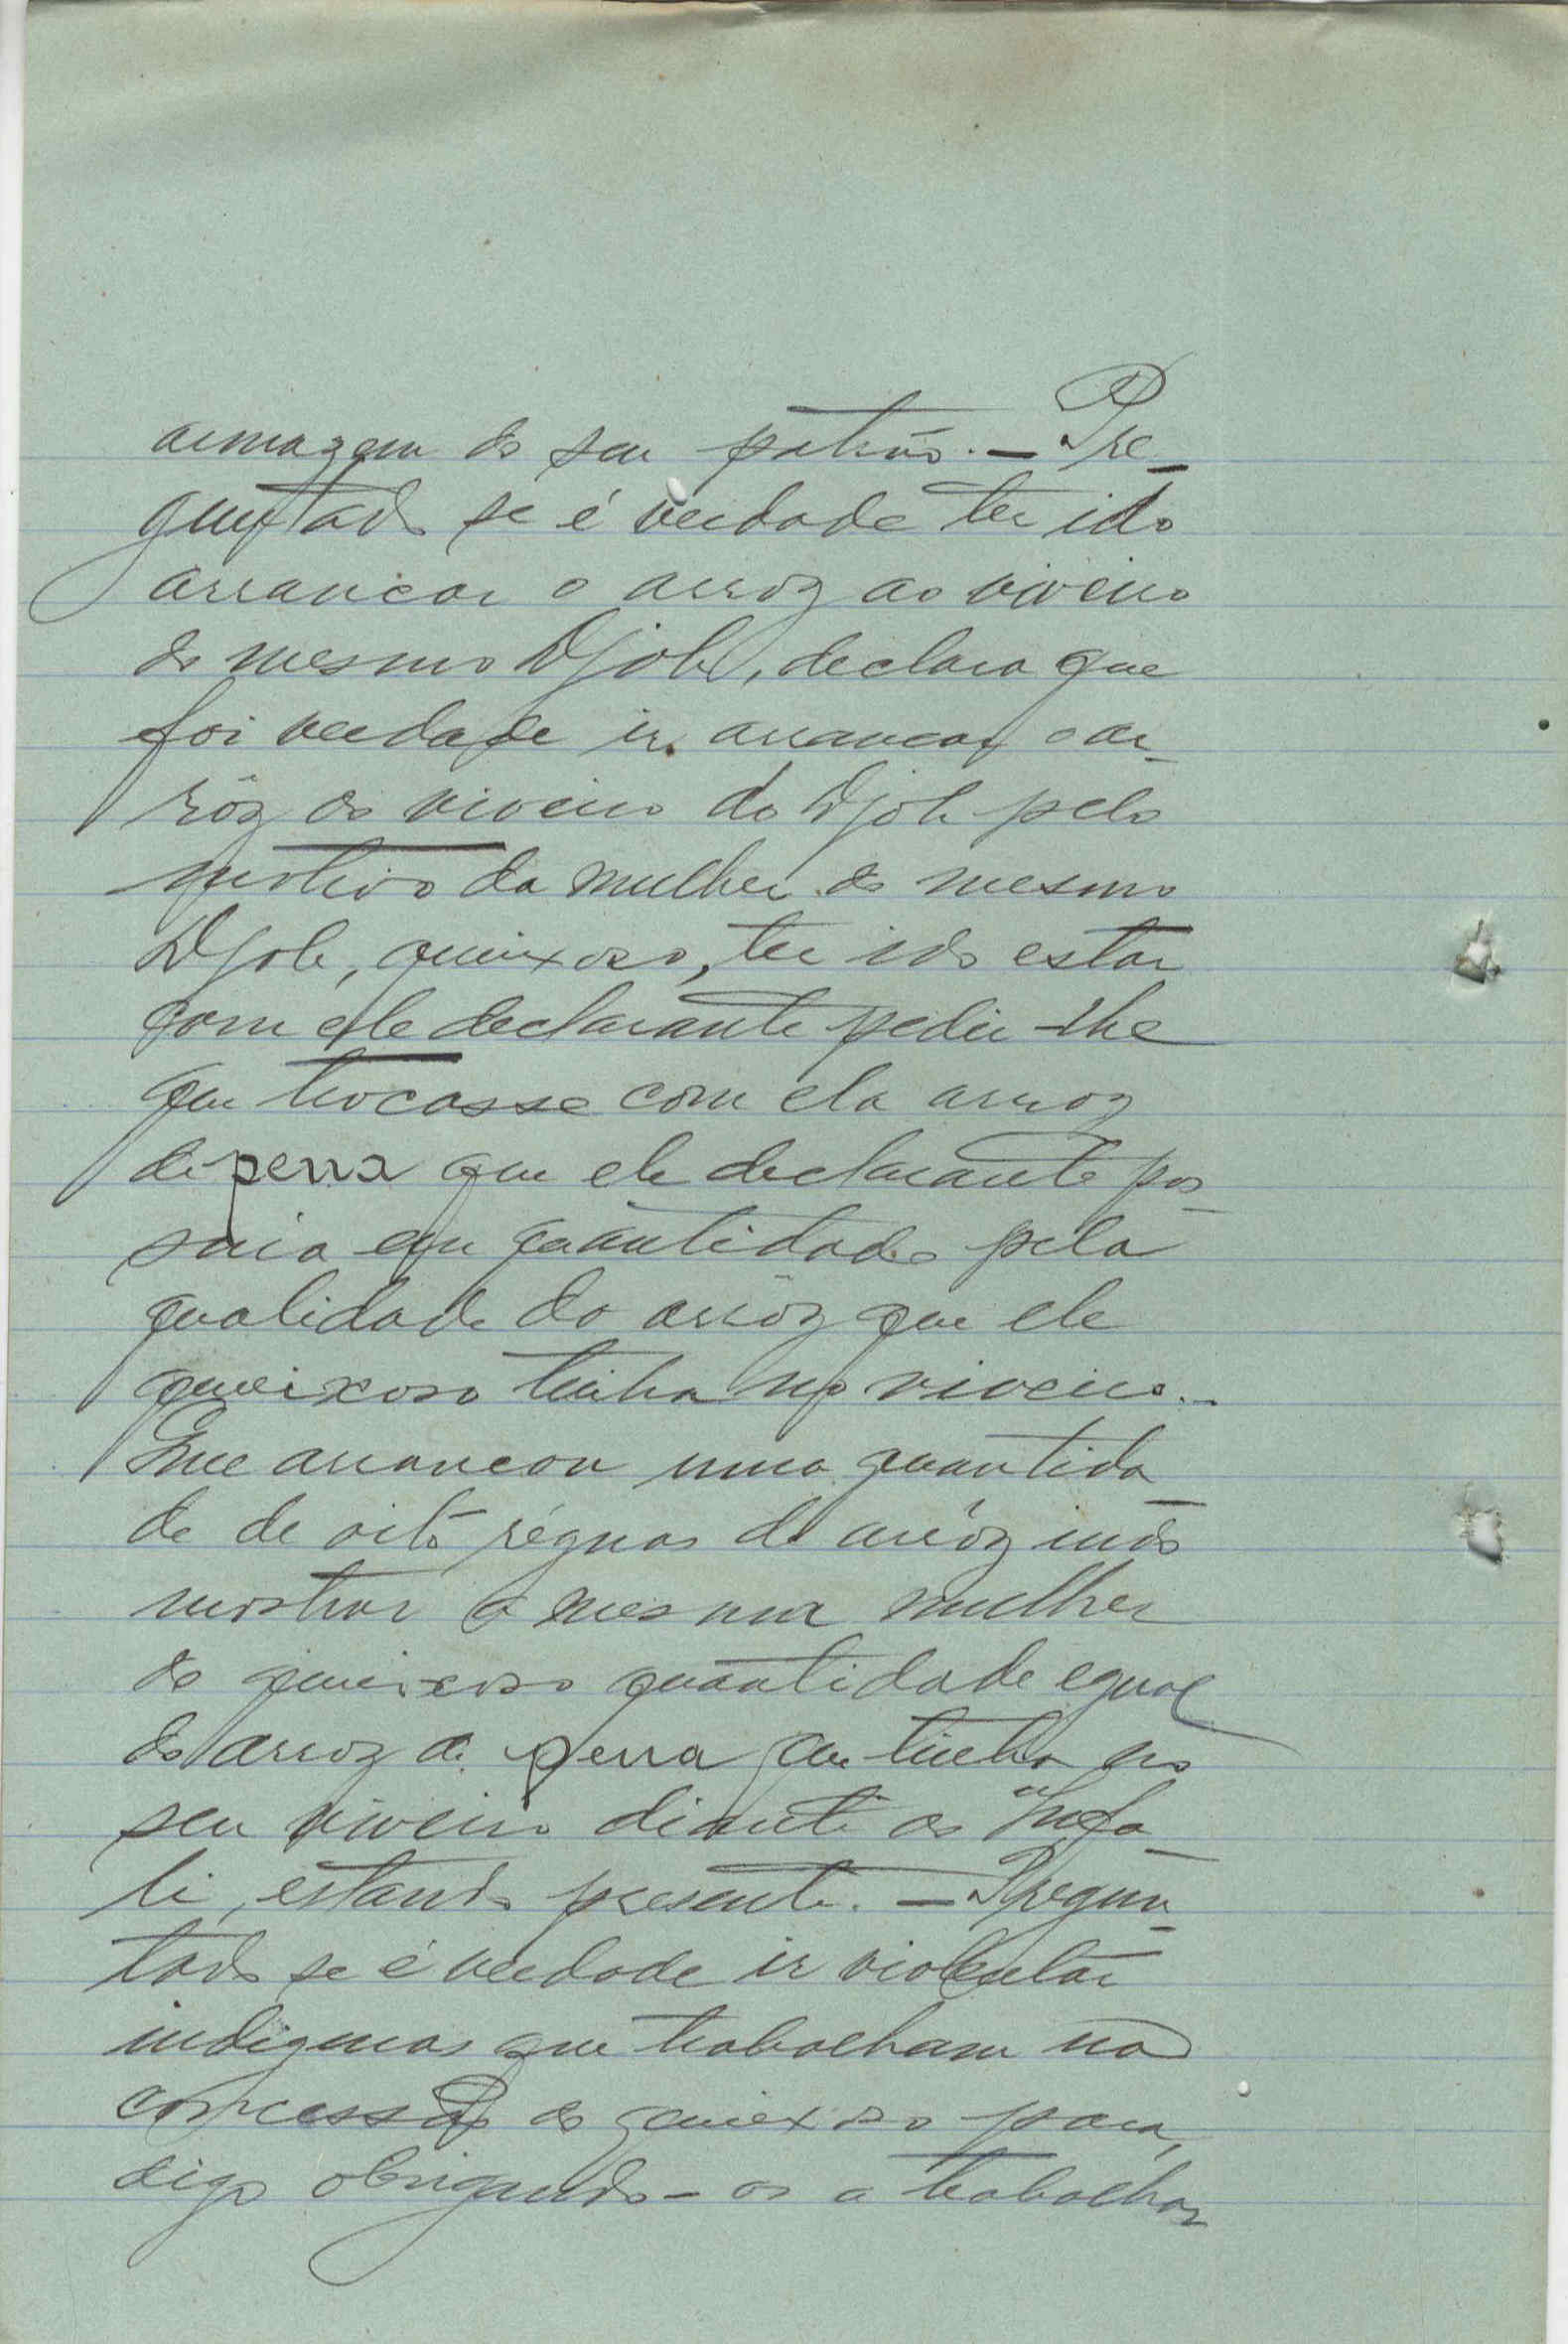 armazem do seu patrão. — Pre-
guntado se é verdade ter ido
arrancar o arroz ao viveiro
do mesmo Djobe, declara que
foi verdade ir arrancar o ar-
rôz do viveiro do Djob pelo
motivo da mulher do mesmo
Djob, queixoso, ter ido estar
com ele declarante pedir-lhe
que trocasse com ela arroz
de perra que ele declarante pos-
suia em quantidade pela
qualidade do arrôz que ele
queixoso tinha no viveiro. —
Que arrancou uma quantida-
de de oito réguas de arrôz indo
mostrar á mesma mulher
do queixoso quantidade egual
do arroz de perra que tinha no
seu viveiro diante do Infa-
li, estando presente. — Pregun-
tado se é verdade ir violentar
indigenas que trabalham na
concessão do queixoso para,
digo obrigando-os a trabalhar